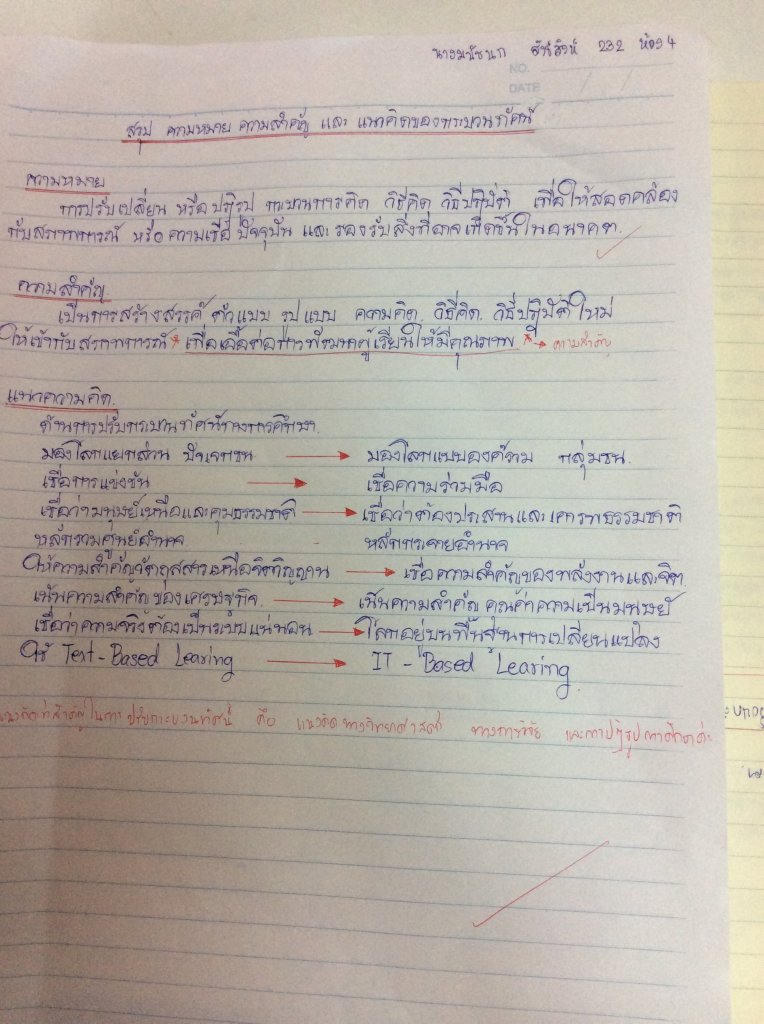 232 ห้อง 4
NO.
DATE
สรุป ความหมาย ความสำคัญ และ แนวคิดของกระบวนทัศน์
ความหมาย
การปรับเปลี่ยน หรือปฏิรูป กระบวนการคิด วิธีคิด วิธีปฏิบัติ เพื่อให้สอดคล้อง
กับสภาพการณ์ หรือความเชื่อปัจจุบัน และ รองรับสิ่งที่อาจเกิดขึ้นในอนาคต.
ความสำคัญ
เป็นการสร้างสรรค์ ตัวแบบ รูปแบบ ความคิด วิธีคิด วิธีปฏิบัติใหม่
ให้เข้ากับสภาพการณ์ * เพื่อเอื้อต่อการพัฒนาผู้เรียนให้มีคุณภาพ * → ความสำคัญ
แนวความคิด.
ด้านการปรับกระบวนทัศน์ทางการศึกษา.
มองโลกแยกส่วน ปัจเจกชน → มองโลกแบบองค์รวม กลุ่มชน.
เชื่อการแข่งขัน → เชื่อความร่วมมือ
เชื่อว่ามนุษย์เหนือและคุมธรรมชาติ → เชื่อว่าต้องประสานและเคารพธรรมชาติ
หลักรวมศูนย์อำนาจ - หลักกระจายอำนาจ
ให้ความสำคัญวัตถุสสารเหนือจิตวิญญาน → เชื่อความสำคัญของพลังงานและจิต.
เน้นความสำคัญ ของเศรษฐกิจ → เน้นความสำคัญ คุณค่าความเป็นมนุษย์
เชื่อว่าความจริงต้องเป็นระบบแน่นอน → โลกอยู่บนพื้นฐานการเปลี่ยนแปลง
ใช้ Text-Based Learing → IT-Based Learing.
แนวคิดที่สำคัญในการ ปรับกระบวนทัศน์ คือ แนวคิดทางวิทยาศาสตร์ ทางการวิจัย และการปฏิรูปการศึกษาค่ะ